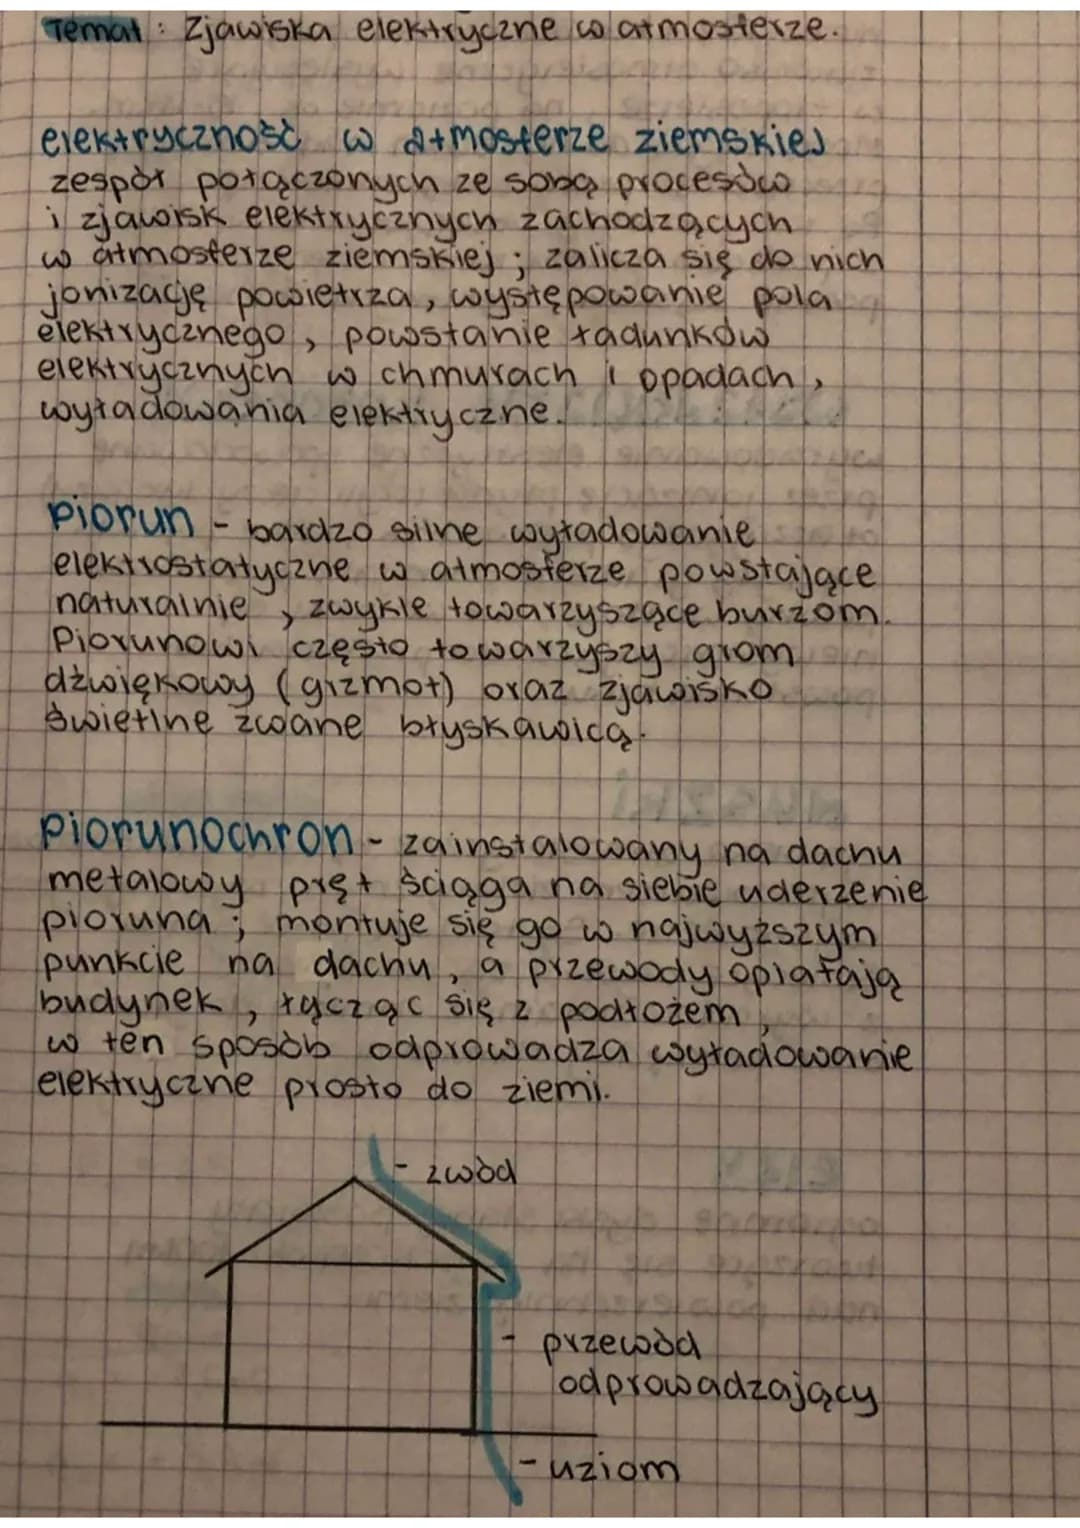 Temat: Zjawiska elektryczne w atmosferze.
elektryczność w atmosferze ziemskiej
zespół połączonych ze sobą procesów
i zjawisk elektrycznych zachodzących
w atmosferze ziemskiej; zalicza się do nich
jonizację powietrza, występowanie pola
elektrycznego, powstanie ładunków
elektrycznych w chmurach i opadach,
wyładowania elektryczne.
piorun - bardzo silne wyładowanie
elektrostatyczne w atmosferze powstające
naturalnie, zwykle towarzyszące burzom.
Piorunowi często towarzyszy grom
dźwiękowy (grzmot) oraz zjawisko
świetlne zwane błyskawicą.
piorunochron - zainstalowany na dachu
metalowy pręt ściąga na siebie uderzenie
pioruna; montuje się go w najwyższym
punkcie na dachu, a przewody oplatają
budynek, łącząc się z podłożem,
w ten sposób odprowadza wyładowanie
elektryczne prosto do ziemi.
- zwód
- przewód
odprowadzający
- uziom